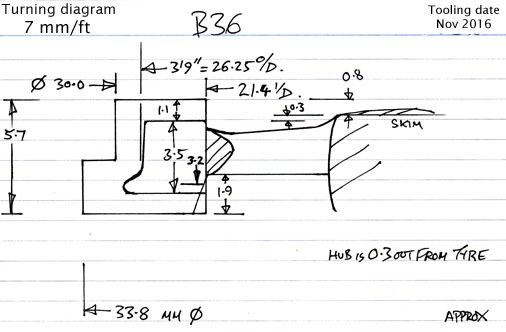 Turning diagram
7 mm/ft
B36
Tooling date
Nov 2016
3'9" = 26.25 O/D.
Ø 30.0
21.4 I/D.
0.8
1.1
0.3
SKIM
5.7
3.5
3.2
1.9
HUB IS 0.3 OUT FROM TYRE
33.8 MM Ø
APPROX